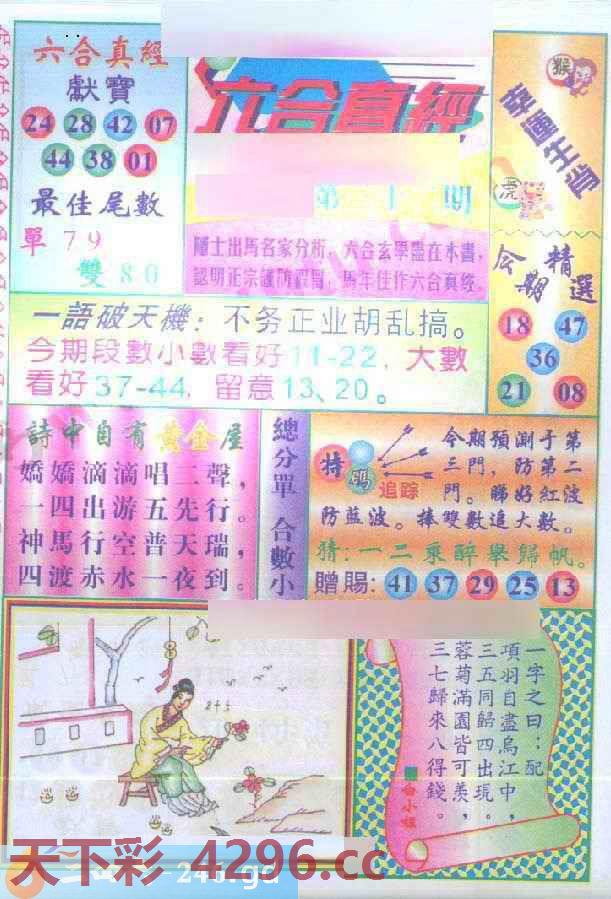 六合真經
獻寶
24 28 42 07
44 38 01
最佳尾數
單 79
雙 80
六合真經
第 期
隱士出馬名家分析，六合玄學盡在本書，
認明正宗謹防假冒，馬年佳作六合真經。
猴
幸運生肖
虎
今期精選
18 47
36
21 08
一語破天機：不务正业胡乱搞。
今期段數小數看好11-22，大數
看好37-44，留意13、20。
詩中自有黃金屋
嬌嬌滴滴唱二聲，
一四出游五先行。
神馬行空普天瑞，
四渡赤水一夜到。
總分單 合數小
特碼
追踪
今期預測于第
三門，防第二
門。睇好紅波
防藍波。捧雙數追大數。
猜：一二乘醉舉歸帆。
贈賜：41 37 29 25 13
一字之曰：配
項羽自盡烏江中，
三五同歸四出現。
蓉菊滿園皆可羨，
三七歸來八得錢。
白小姐
天下彩 4296.cc